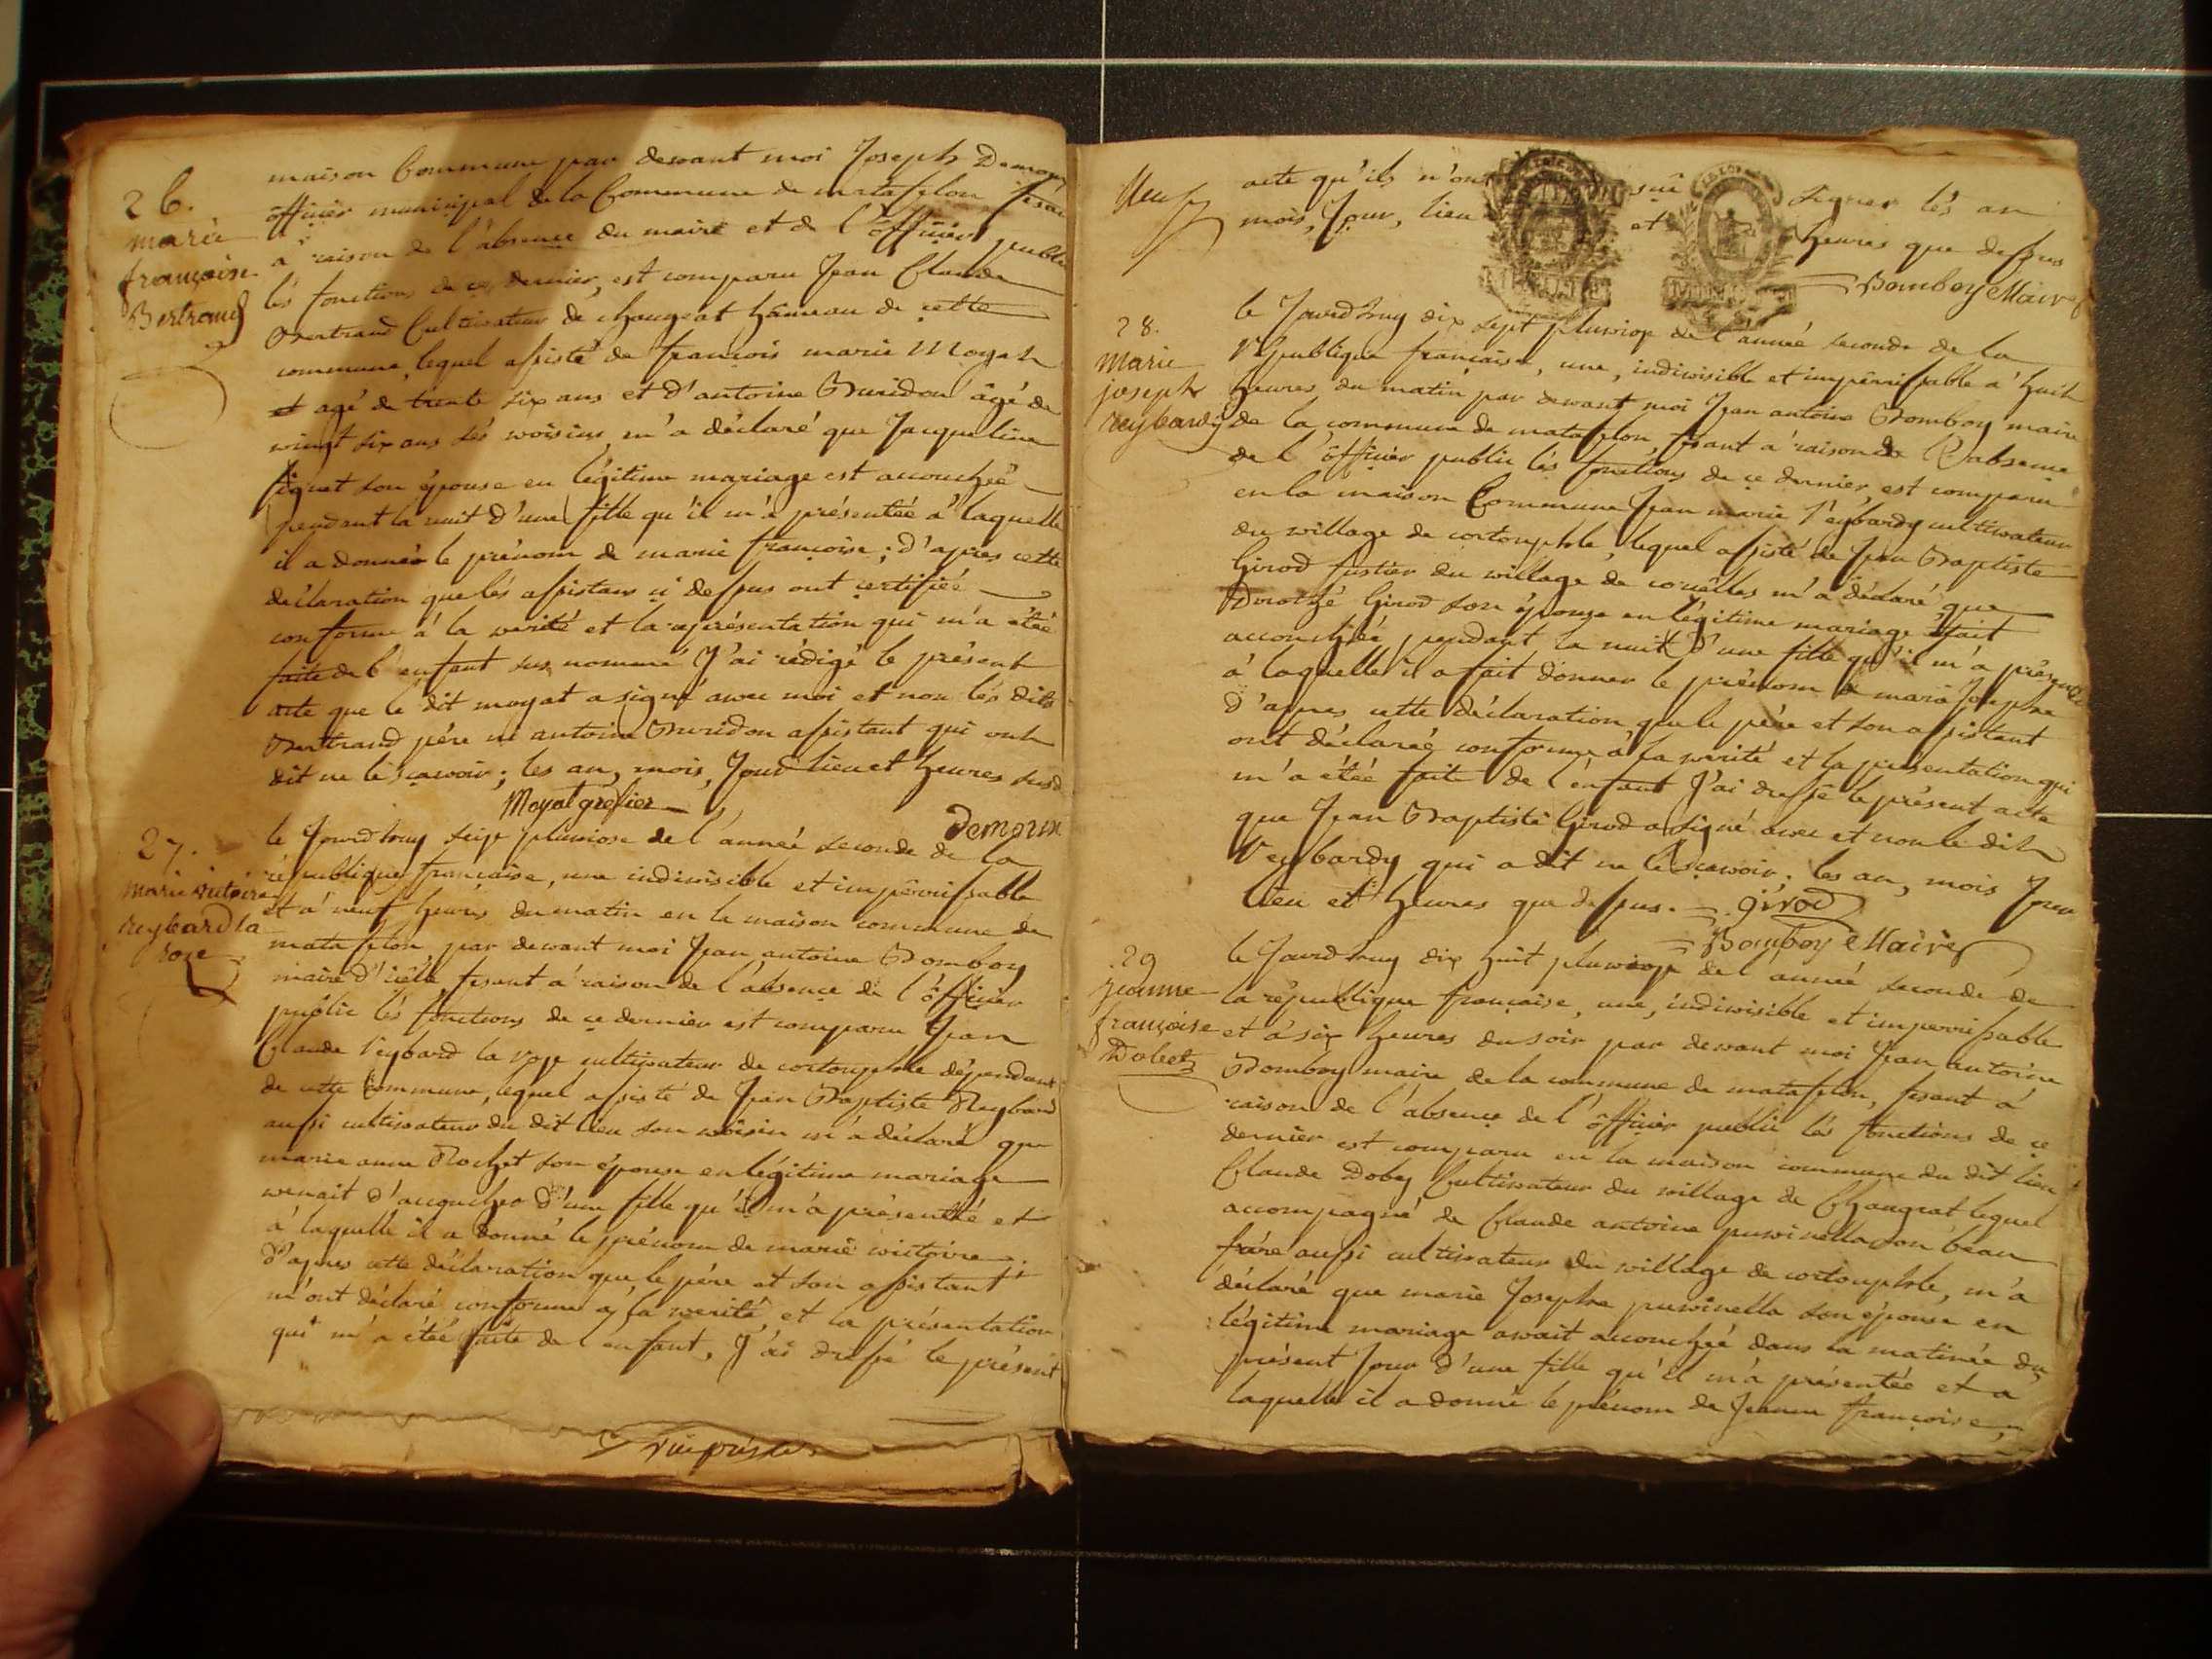 26.
marie
françoise
Bertrand
maison Commune par devant moi Joseph Demoux
ôfficier municipal de la Commune de matafelon fesant
a raison de l'absence du maire et de l'ôfficier public
lés fonctions de ce dernier, est comparu Jean Claude
Bertrand Cultivateur de changeat hameau de cette
commune, lequel assisté de francois marie Moyat
et agé de trente six ans et d'antoine Buridon âgé de
vingt six ans sés voisins, m'a déclaré que Jacqueline
son épouse en légitime mariage est accouchée
pendant la nuit d'une fille qu'il m'a présentée à laquelle
il a donnée le prénom de marie françoise; d'apres cette
déclaration que lés assistans ci dessus ont certifiée
conforme à la verité et la représentation qui m'a étée
faite de l'enfant sus nommé J'ai rédigé le présent
acte que le dit moyat a signé avec moi et non lés dits
Bertrand pére ni antoine Buridon assistant qui ont
dit ne le sçavoir; les an, mois, Jour lieu et heures susd
Moyat grefier
Demoux
27.
marie victoire
reybard la
roze
le Jourdhuy seize pluviose de l'année seconde de la
république française, une indivisible et impérrissable
et à neuf heures du matin en la maison commune de
matafelon par devant moi Jean antoine Bomboy
maire d'icélle, fesant a raison de l'absence de l'ôfficier
public lés fonctions de ce dernier est comparu Jean
Claude reybard la roze cultivateur de cortouphle dépendant
de cette Commune, lequel assisté de Jean Baptiste Reybard
aussi cultivateur du dit lieu son voisin m'a déclaré que
marie anne Rochet son épouse en légitime mariage
venait d'accoucher d'une fille qu'il m'a présentée et
à laquelle il a donné le prénom de marie victoire;
d'apres cette déclaration que le pére et son assistant
m'ont déclaré conforme à la verité, et la présentation
qui m'a étée faite de l'enfant, J'ai dréssé le présent
Neuf
acte qu'ils n'ont sçu signer lés an
mois, Jour, lieu et heures que dessus
Bomboy Maire
28.
Marie
joseph
reybardy
le Jourdhuy dix sept pluviose de l'année seconde de la
république française, une, indivisible et impérrissable à huit
heures du matin par devant moi Jean antoine Bomboy maire
de la commune de matafelon, fesant a raison de l'absence
de l'ôfficier public lés fonctions de ce dernier, est comparu
en la maison Commune Jean marie reybardy cultivateur
du village de cortouphle, lequel assisté de Jean Baptiste
Girod fustier du village de coisélles m'a déclaré que
Girod son épouse en légitime mariage était
accouchée pendant la nuit d'une fille qu'il m'a présentée
à laquelle il a fait donner le prénom de marie Josephe
d'apres cette déclaration que le pére et son assistant
ont déclarée conforme à la verité et la présentation qui
m'a étée faite de l'enfant J'ai dressé le présent acte
que Jean Baptiste Girod a signé avec et non le dit
reybardy qui a dit ne le sçavoir; les an, mois Jour
lieu et heures que dessus.
girod
Bomboy Maire
29
jeanne
françoise
Dobey
le Jourdhuy dix huit pluviose de l'année seconde de
la république française, une, indivisible et imperrissable
et à six heures du soir par devant moi Jean antoine
Bomboy maire de la commune de matafelon, fesant à
raison de l'absence de l'ôfficier public lés fonctions de ce
dernier est comparu en la maison commune du dit lieu
Claude Dobey Cultivateur du village de Changeat lequel
accompagné de Claude antoine puvinella son beau
frére aussi cultivateur du village de cortouphle, m'a
déclaré que marie Josephe puvinélla son épouse en
légitime mariage avait accouchée dans la matinée du
présent Jour d'une fille qu'il m'a présentée et a
laquelle il a donné le prénom de Jeanne françoise;